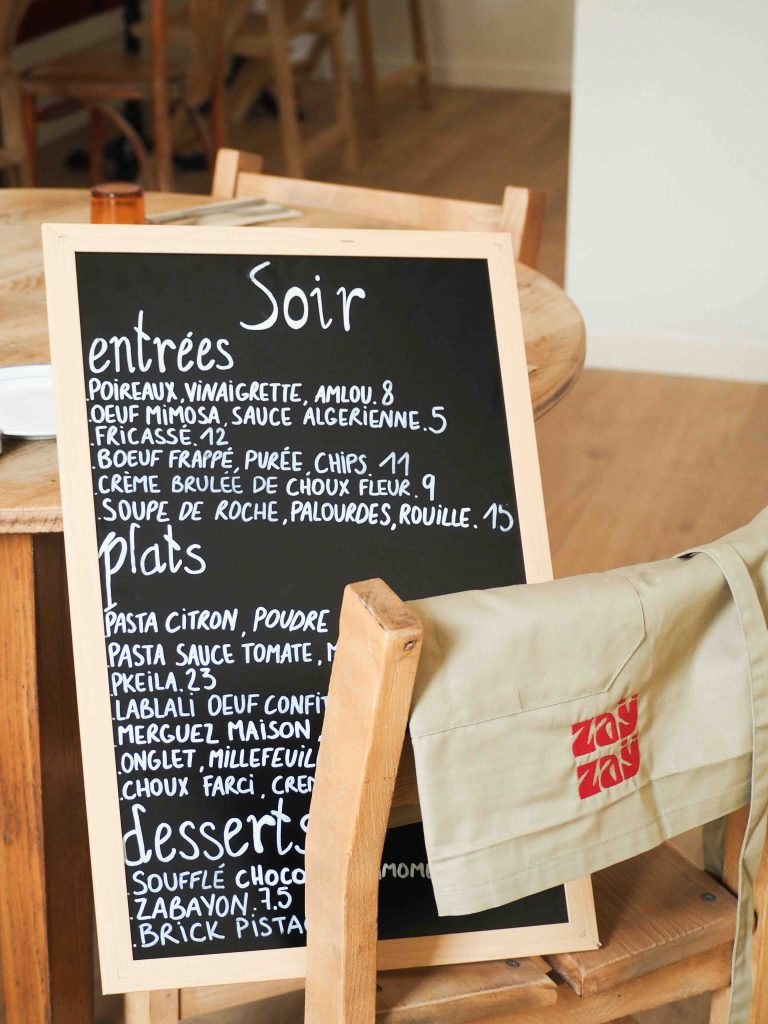 Soir
entrées
.POIREAUX, VINAIGRETTE, AMLOU. 8
.OEUF MIMOSA, SAUCE ALGERIENNE. 5
.FRICASSÉ. 12
.BOEUF FRAPPÉ, PURÉE, CHIPS. 11
.CRÈME BRULÉE DE CHOUX FLEUR. 9
.SOUPE DE ROCHE, PALOURDES, ROUILLE. 15
plats
PASTA CITRON, POUDRE
PASTA SAUCE TOMATE,
PKEILA. 23
.LABLALI OEUF CONFIT
.MERGUEZ MAISON
.ONGLET, MILLEFEUIL
.CHOUX FARCI, CREM
desserts
.SOUFFLÉ CHOCO AMOME
.ZABAYON. 7.5
.BRICK PISTAC
zaÿ
zaÿ